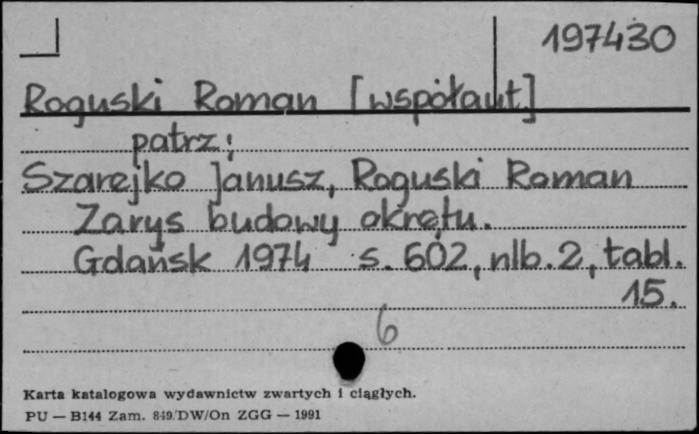 197430
Roguski Roman [współaut.]
patrz:
Szarejko Janusz, Roguski Roman
Zarys budowy okrętu.
Gdańsk 1974 s. 602, nlb. 2, tabl.
15.
6
Karta katalogowa wydawnictw zwartych i ciągłych.
PU — B144 Zam. 849/DW/On ZGG — 1991